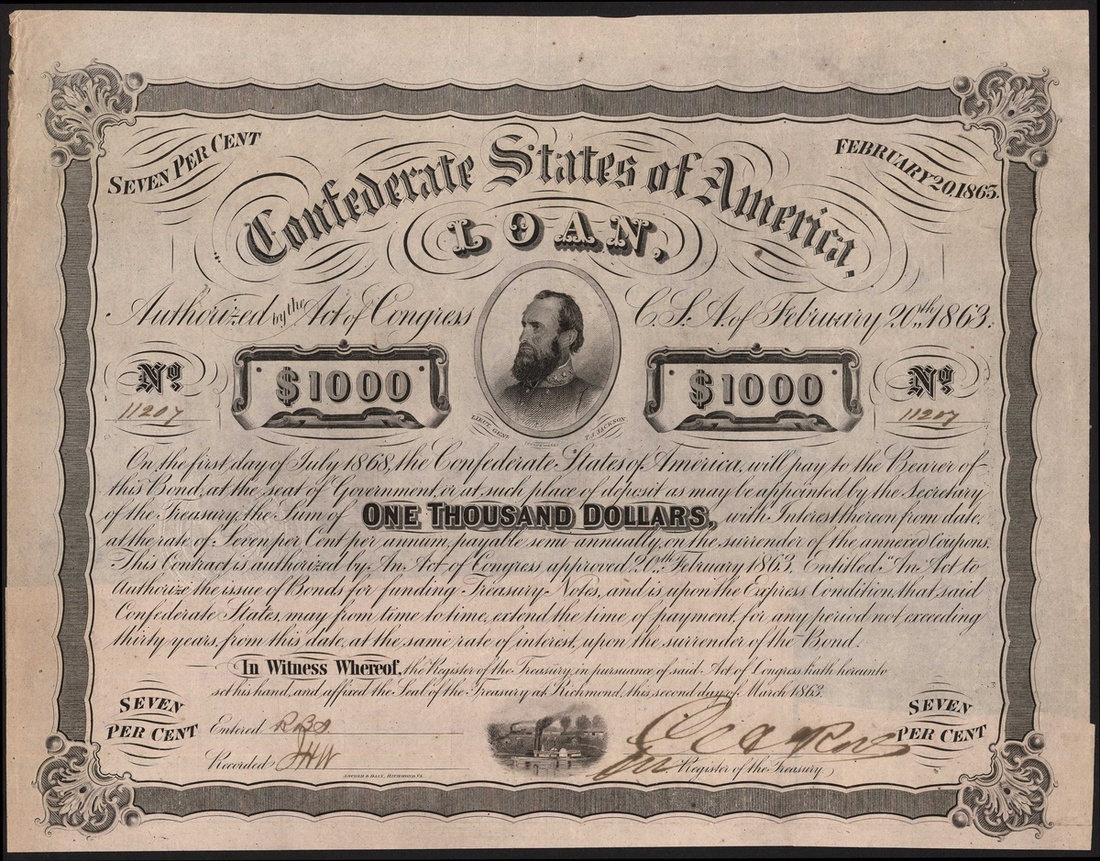 SEVEN PER CENT
FEBRUARY 20, 1863.
Confederate States of America,
LOAN,
Authorized by the Act of Congress C.S.A. of February 20th 1863.
No. 11207
$1000
$1000
No. 11207
LIEUT. GENL. T.J. JACKSON.
On the first day of July 1868, the Confederate States of America, will pay to the Bearer of
this Bond, at the seat of Government, or at such place of deposit as may be appointed by the Secretary
of the Treasury, the Sum of ONE THOUSAND DOLLARS, with Interest thereon from date,
at the rate of Seven per Cent per annum, payable semi annually, on the surrender of the annexed Coupons.
This Contract is authorized by An Act of Congress approved 20th February 1863. Entitled "An Act to
Authorize the issue of Bonds for funding Treasury Notes, and is upon the Express Condition, that said
Confederate States, may from time to time, extend the time of payment, for any period not exceeding
thirty years, from this date, at the same rate of interest, upon the surrender of the Bond.
In Witness Whereof, the Register of the Treasury, in pursuance of said Act of Congress hath hereunto
set his hand, and affixed the Seal of the Treasury at Richmond, this second day of March 1863.
SEVEN PER CENT
SEVEN PER CENT
Entered
Recorded
Register of the Treasury
RICHMOND, VA.